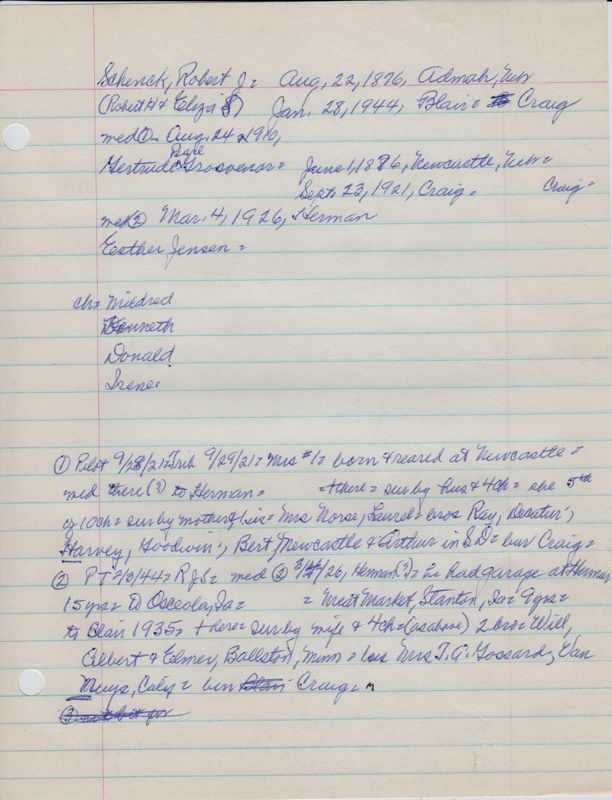 Schenck, Robert J = Aug, 22, 1876, Admah, Neb
(Robert H & Eliza S) Jan. 28, 1944, Blair = Craig
med ① = Aug. 24, 1910,
Pape
Gertrude Grosvenor = June 1, 1886, Newcastle, Neb =
Sept. 23, 1921, Craig = Craig =
med ② Mar. 4, 1926, Herman
Esther Jensen =
ch = Mildred
Kenneth
Donald
Irene
① Pilot 9/28/21 = Trib 9/29/21 = Mrs #1 = born & reared at Newcastle =
med there (?) to Herman = = + here = sur by hus & 4 ch = she 5th
of 10 ch = sur by mother & sis = Mrs Norse, Laurel = bros Ray, Decatur;
Harvey, Goodwin; Bert, Newcastle & Arthur in SD = bur Craig =
② PT 2/3/44 = RJS = med ② 3/4/26, Herman (?) = he had garage at Herman
15 yrs = to Osceola, Ia = = Meat Market, Stanton, Ia = 9 yrs =
to Blair 1935 = + here = sur by wife & 4 ch = (as above) 2 bro = Will,
Albert & Elmer, Ballston, Minn = sis Mrs T. A. Gossard, Van
Nuys, Calif = bur Blair Craig =
③ not bit for